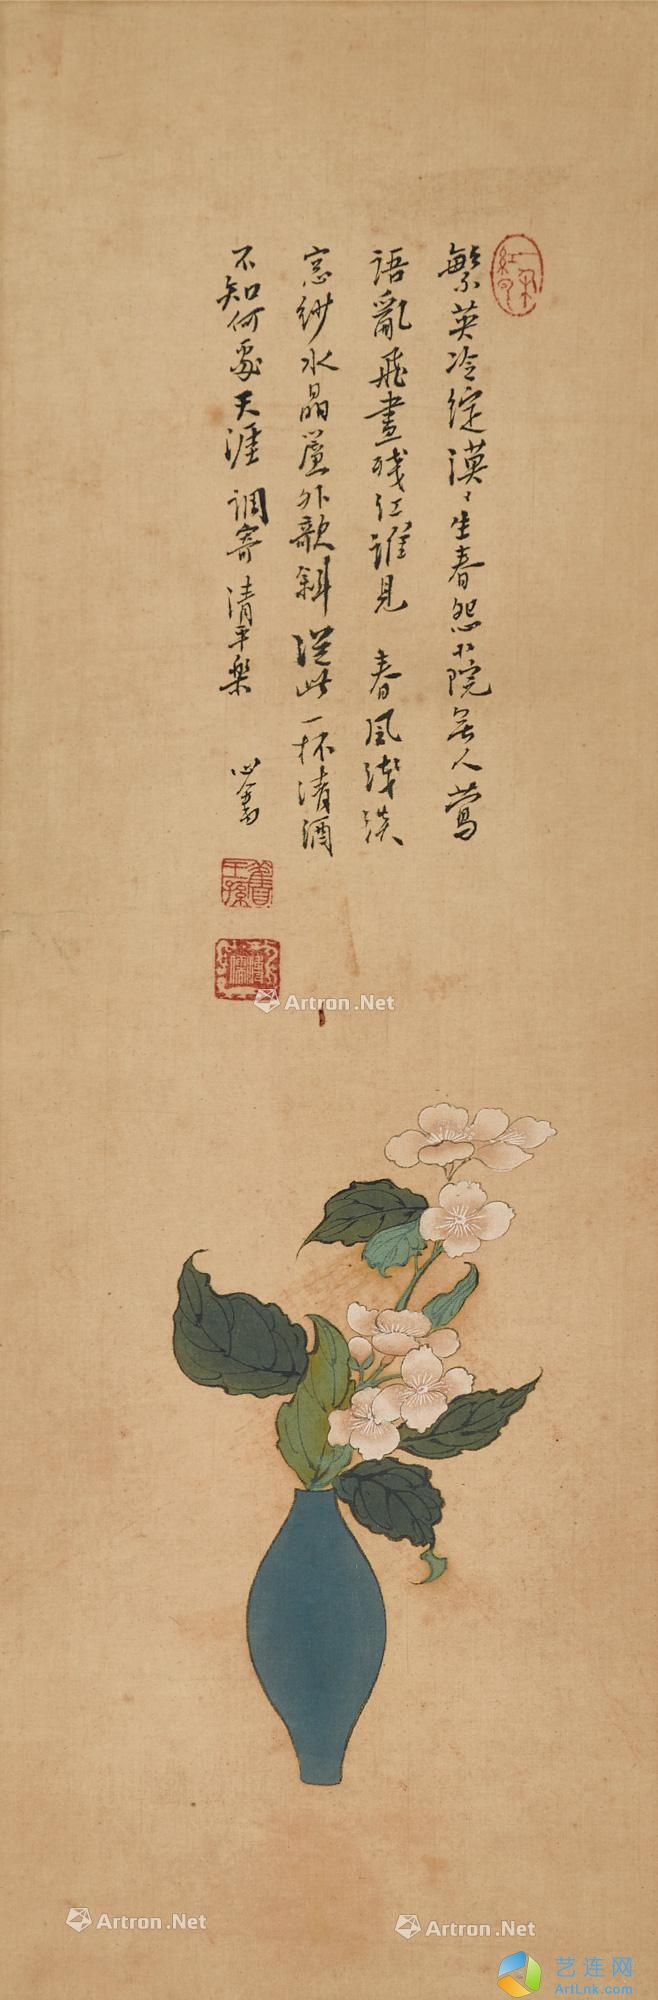 繁英冷綻漠〻生春怨小院無人鶯
語亂飛盡殘紅誰見 春風淺淡
窓紗水晶簾外歌斜從此一杯清酒
不知何處天涯 調寄清平樂 心畬
舊王孫
Artron.Net
Artron.Net
Artron.Net
艺连网
ArtLnk.com